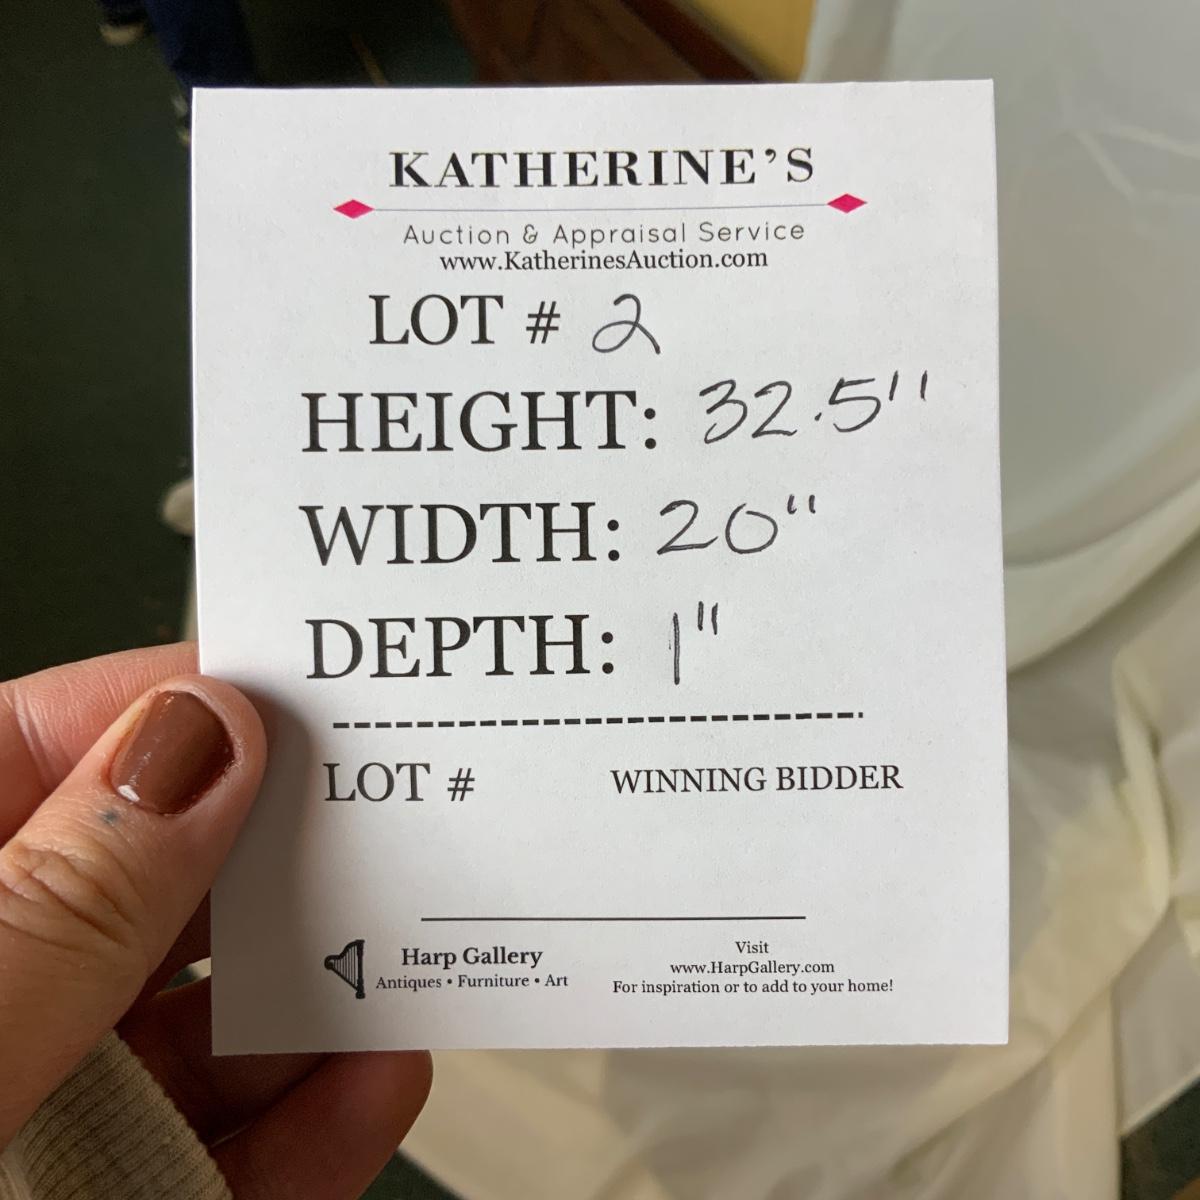 KATHERINE'S
Auction & Appraisal Service
www.KatherinesAuction.com
LOT # 2
HEIGHT: 32.5"
WIDTH: 20"
DEPTH: 1"
LOT #
WINNING BIDDER
Harp Gallery
Antiques • Furniture • Art
Visit
www.HarpGallery.com
For inspiration or to add to your home!